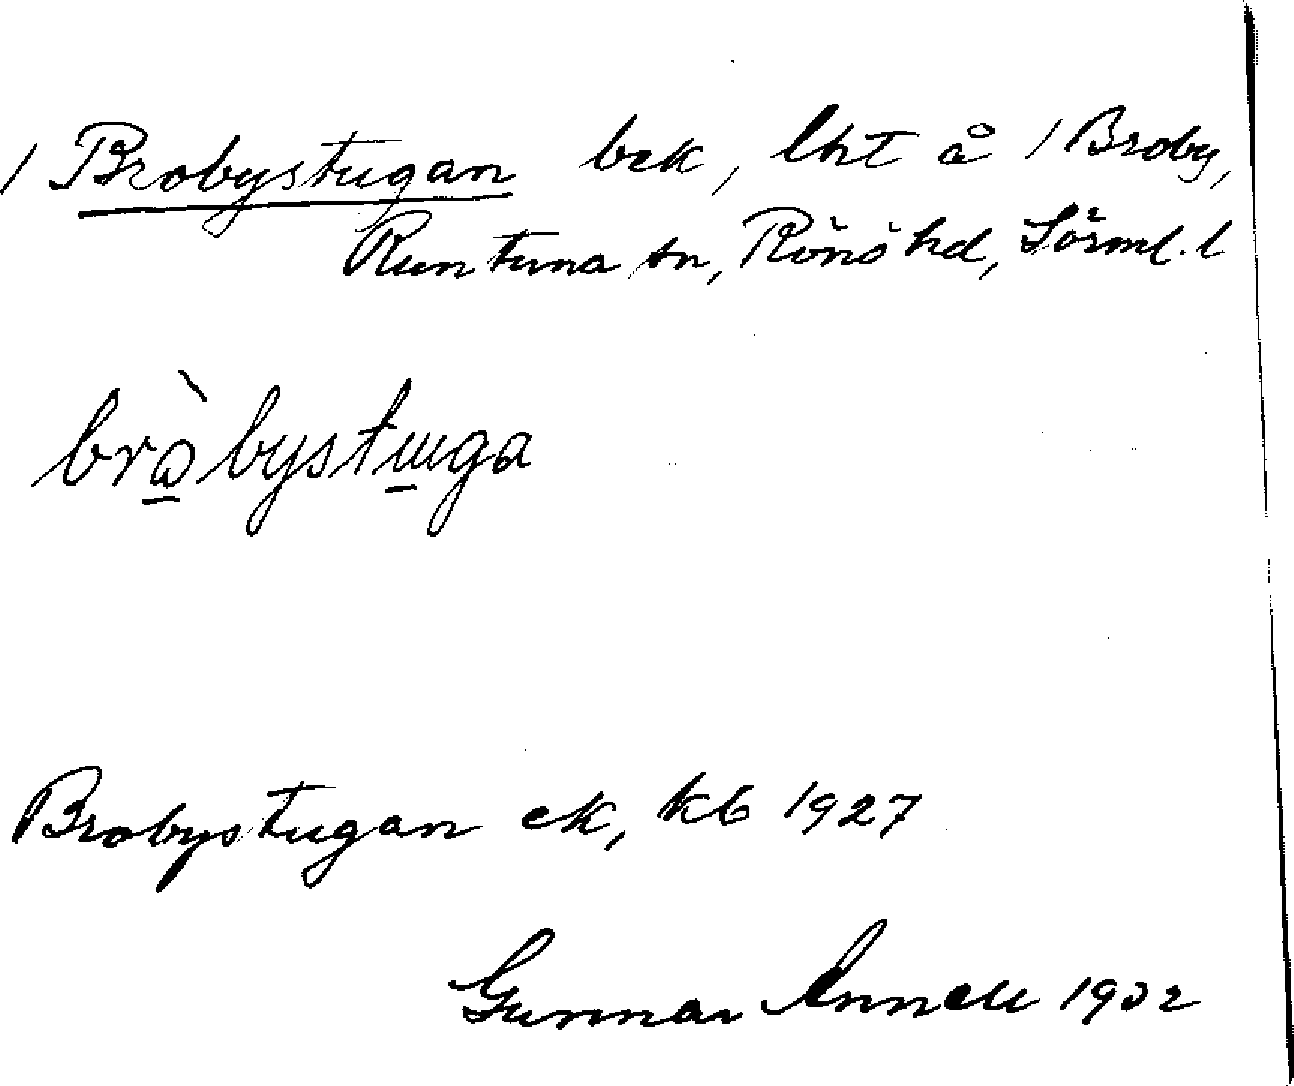 1 Brobystugan bek, lht å 1 Broby,
Runtuna sn, Rönö hd, Sörml. l
bròbystuga
Brobystugan ek, kb 1927
Gunnar Annell 1932